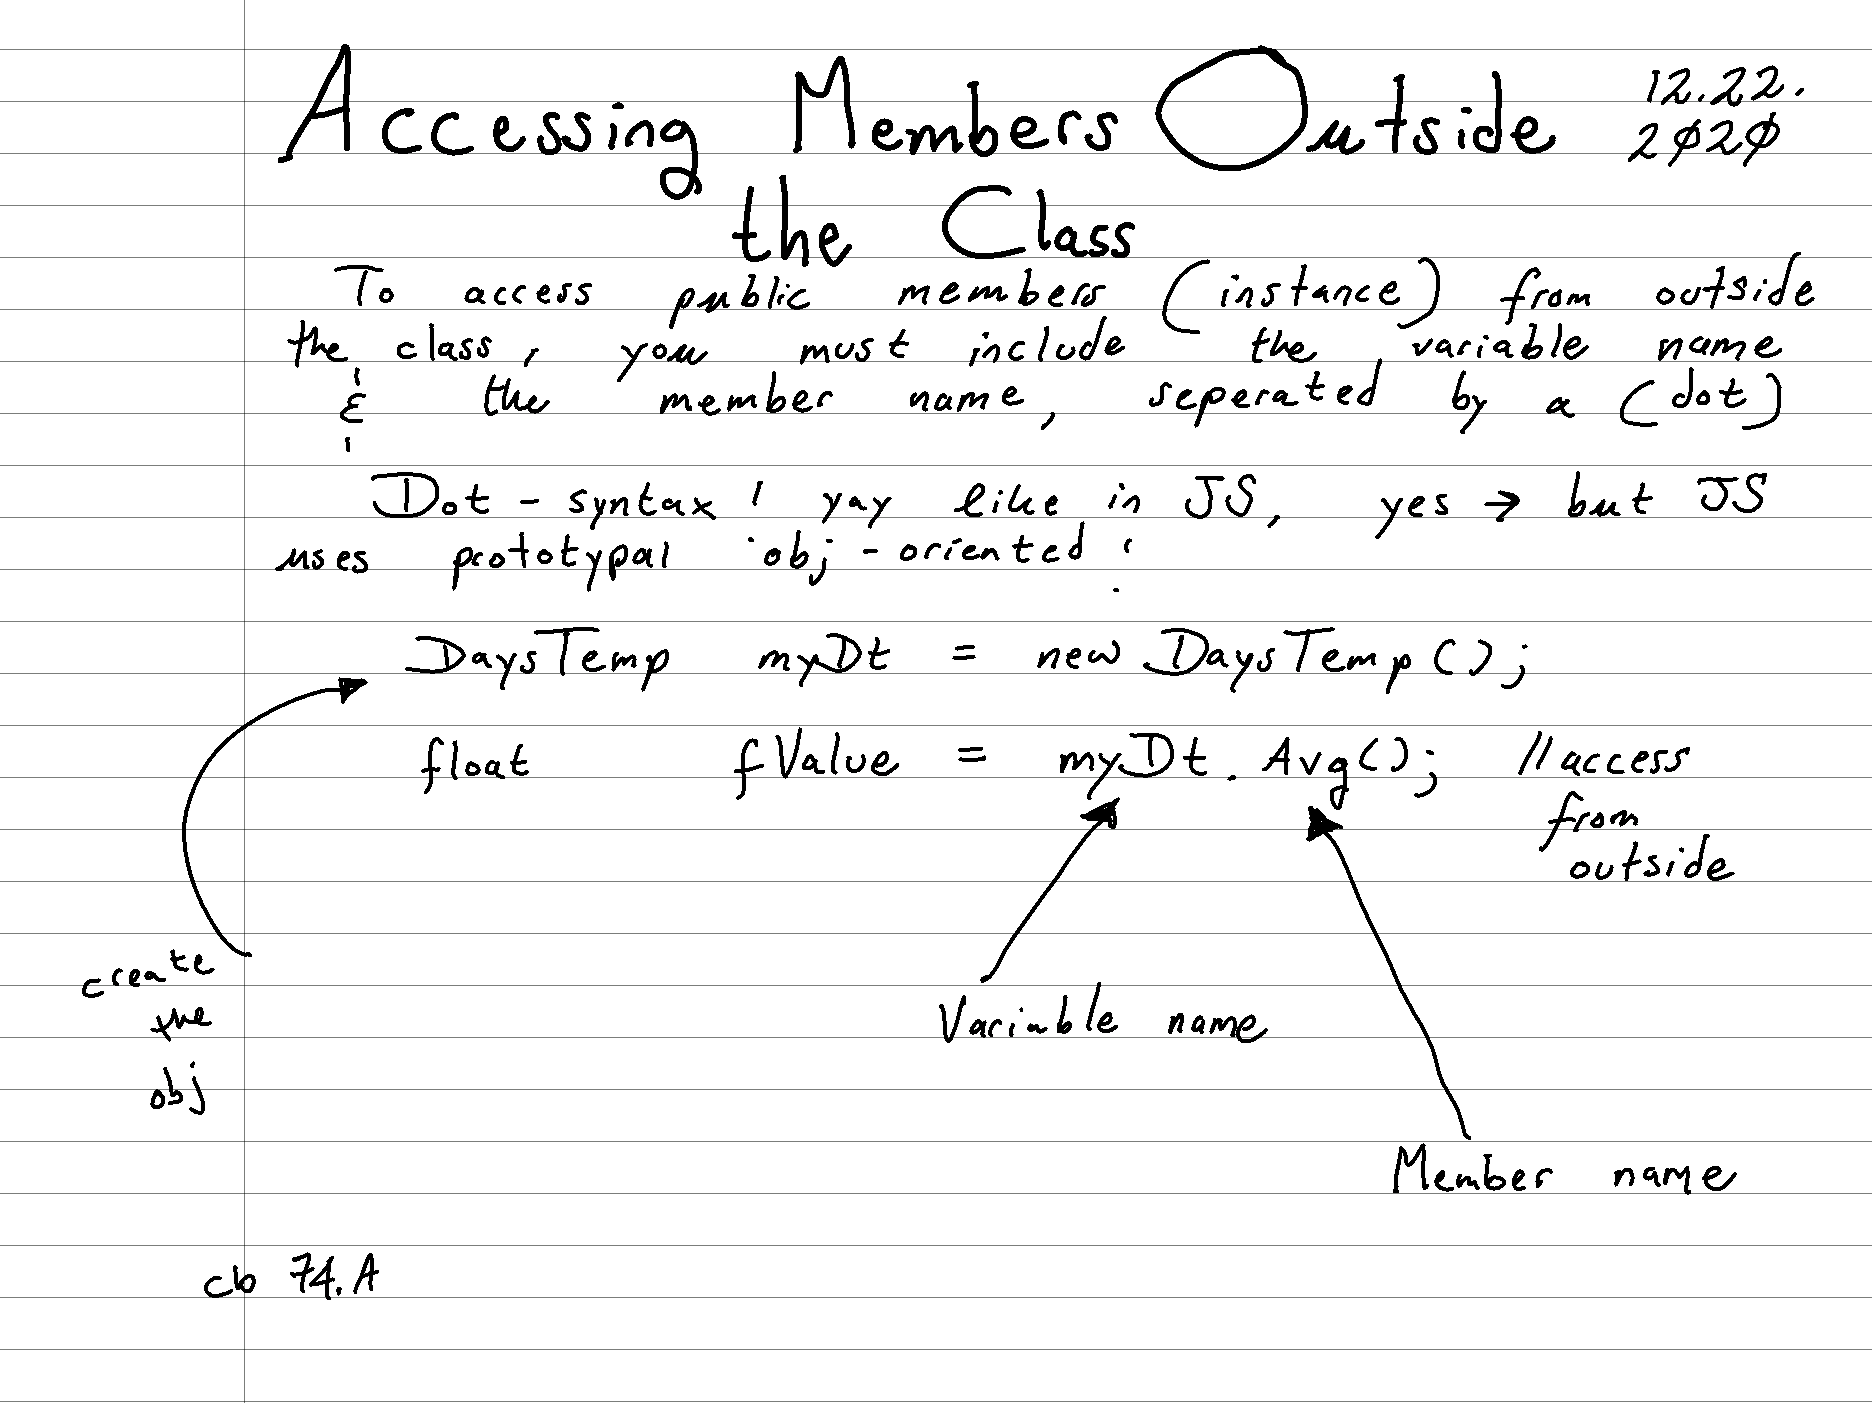 Accessing Members Outside
12.22.
2020
the Class
To access public members (instance) from outside
the class, you must include the variable name
& the member name, seperated by a (dot)
Dot-syntax! yay like in JS, yes → but JS
uses prototypal obj-oriented!
DaysTemp myDt = new DaysTemp();
float fValue = myDt.Avg(); //access
from
outside
create
the
obj
Variable name
Member name
cb 74.A